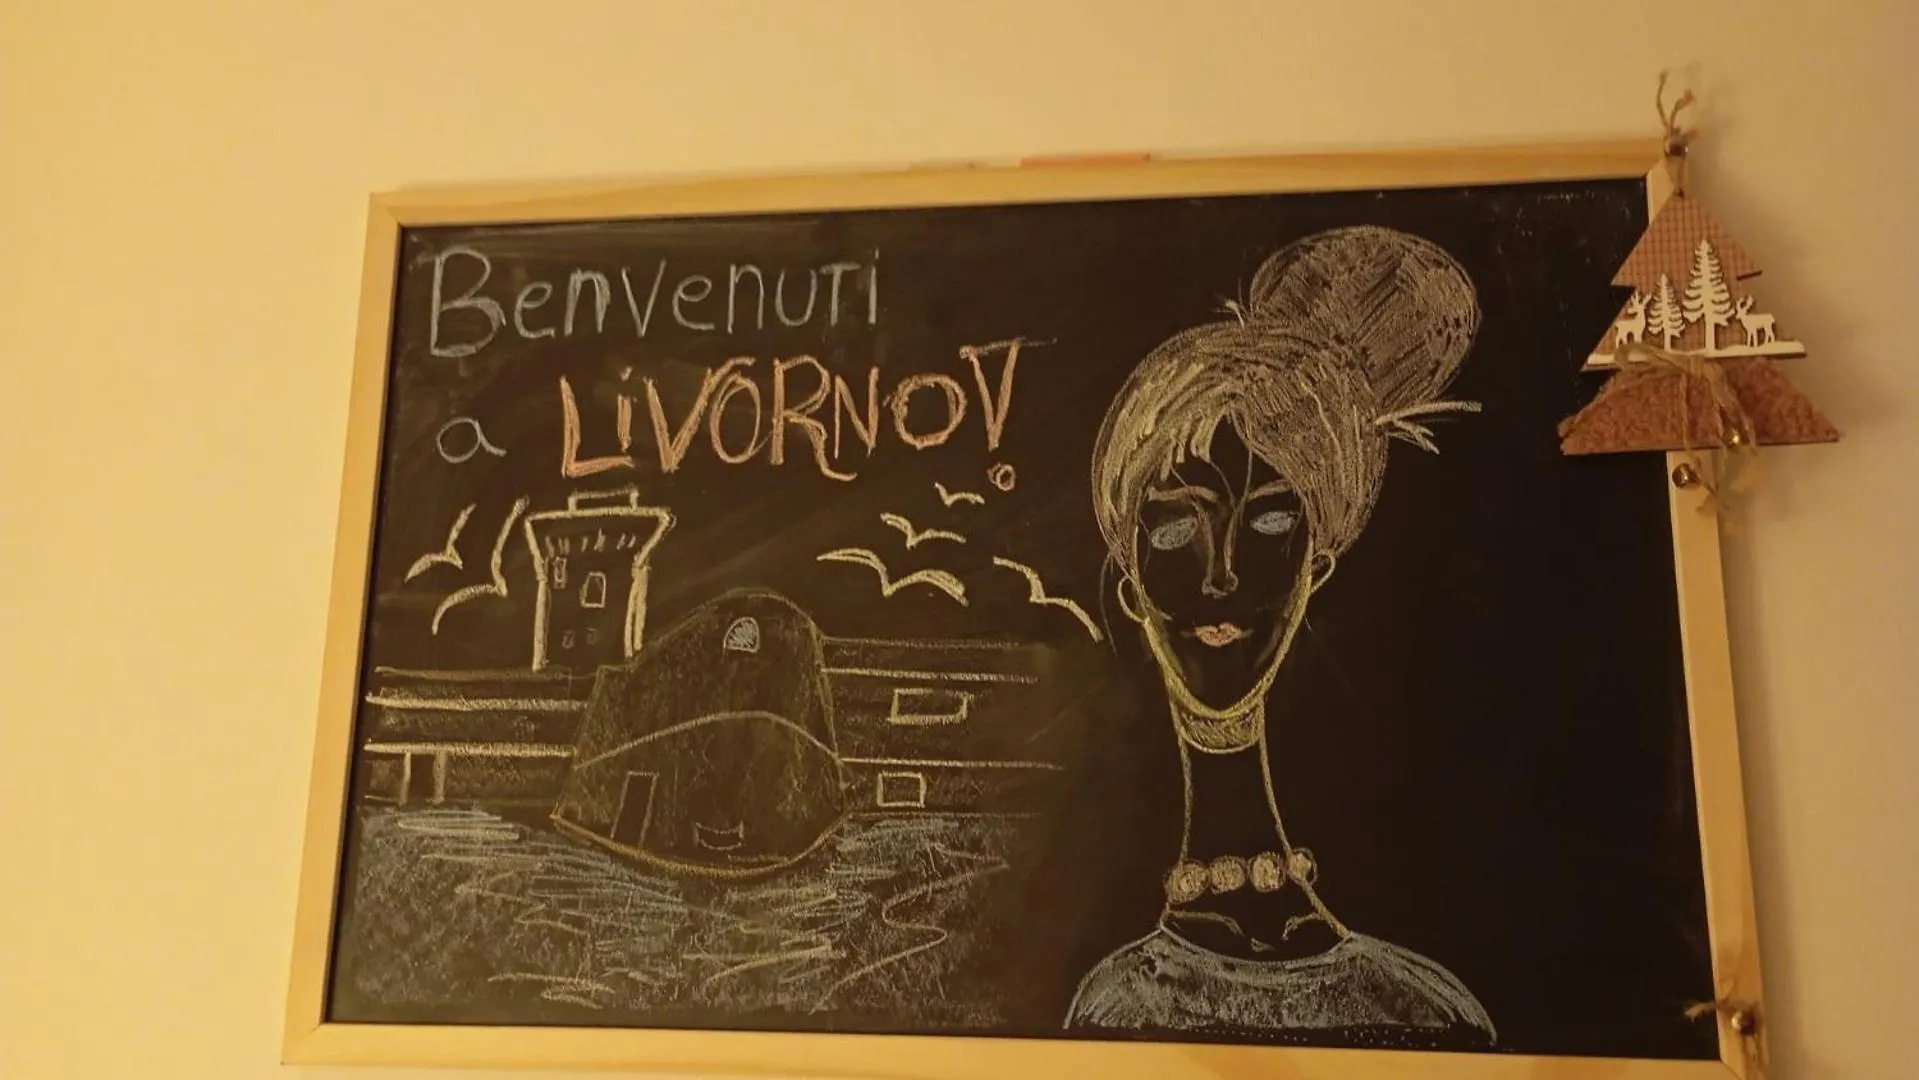 Benvenuti
a LiVORNO!